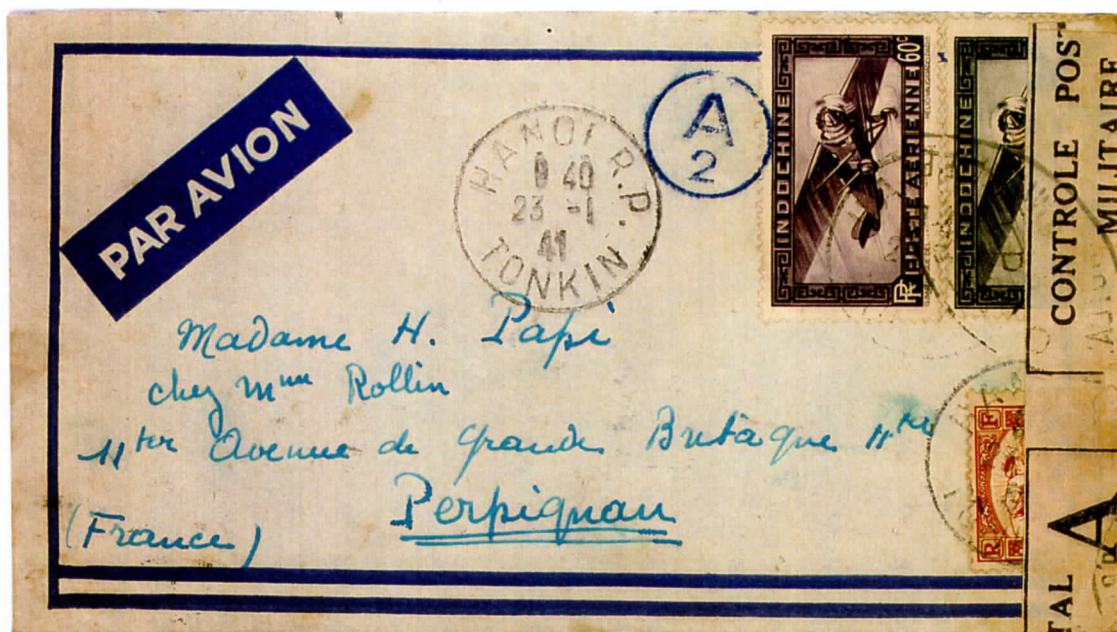 PAR AVION
HANOI R.P.
23 -1
41
TONKIN
A
2
INDOCHINE
60c
POSTE AÉRIENNE
RF
INDOCHINE
CONTROLE POST
MILITAIRE
Madame H. Papi
chez Mme Rollin
11ter Avenue de Grande Bretagne 11ter
Perpignan
(France)
F
R
A
TAL